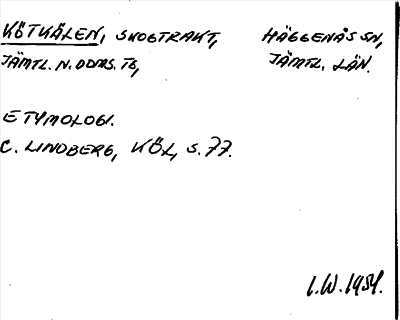 KÖTKÄLEN, SKOGTRAKT, HÄGGENÅS SN,
JÄMTL. N. DOMS. TB, JÄMTL. LÄN.
ETYMOLOGI.
C. LINDBERG, KÖL, S. 77.
I.W. 1954.